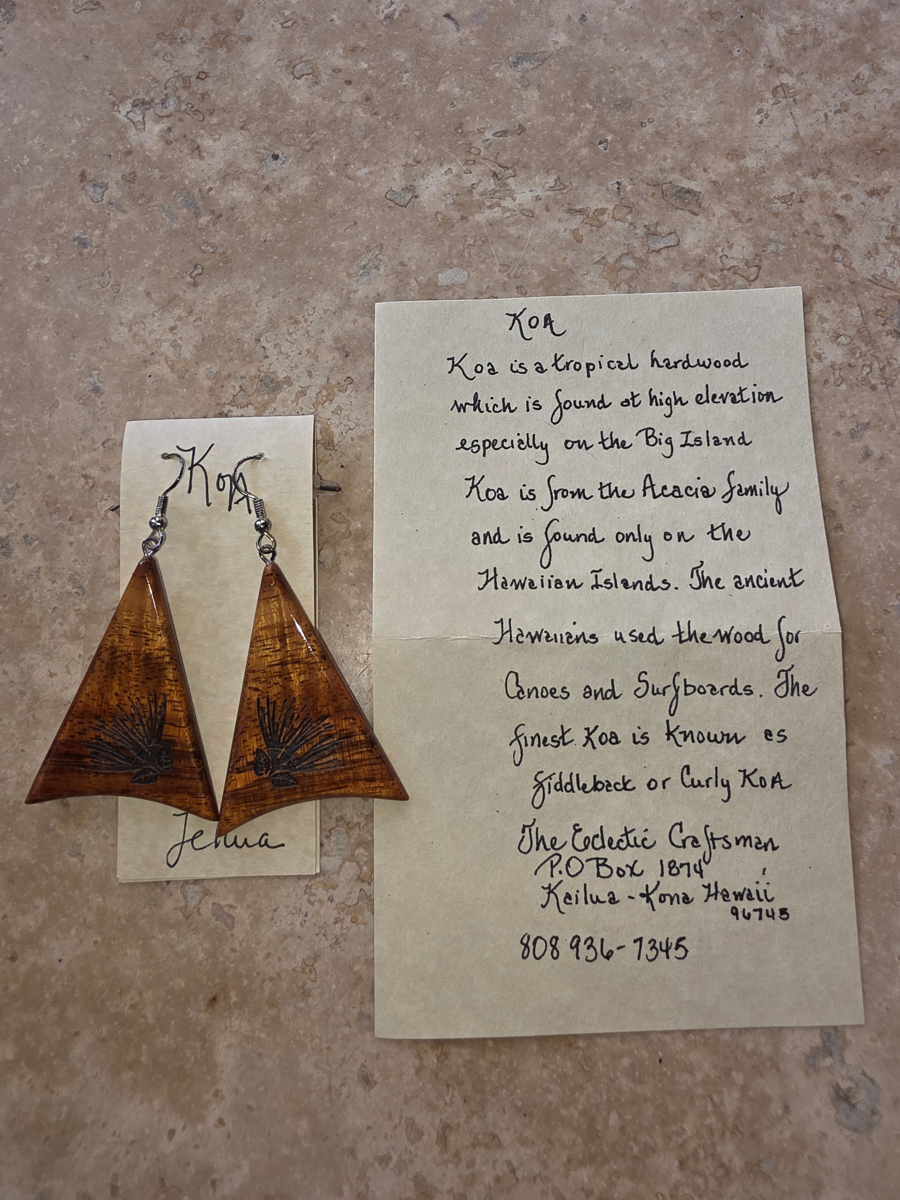 Koa
Lehua
KOA
Koa is a tropical hardwood
which is found at high elevation
especially on the Big Island
Koa is from the Acacia family
and is found only on the
Hawaiian Islands. The ancient
Hawaiians used the wood for
Canoes and Surfboards. The
finest Koa is known as
fiddleback or Curly KOA
The Eclectic Craftsman
P.O Box 1874
Kailua-Kona Hawaii
96745
808 936-7345